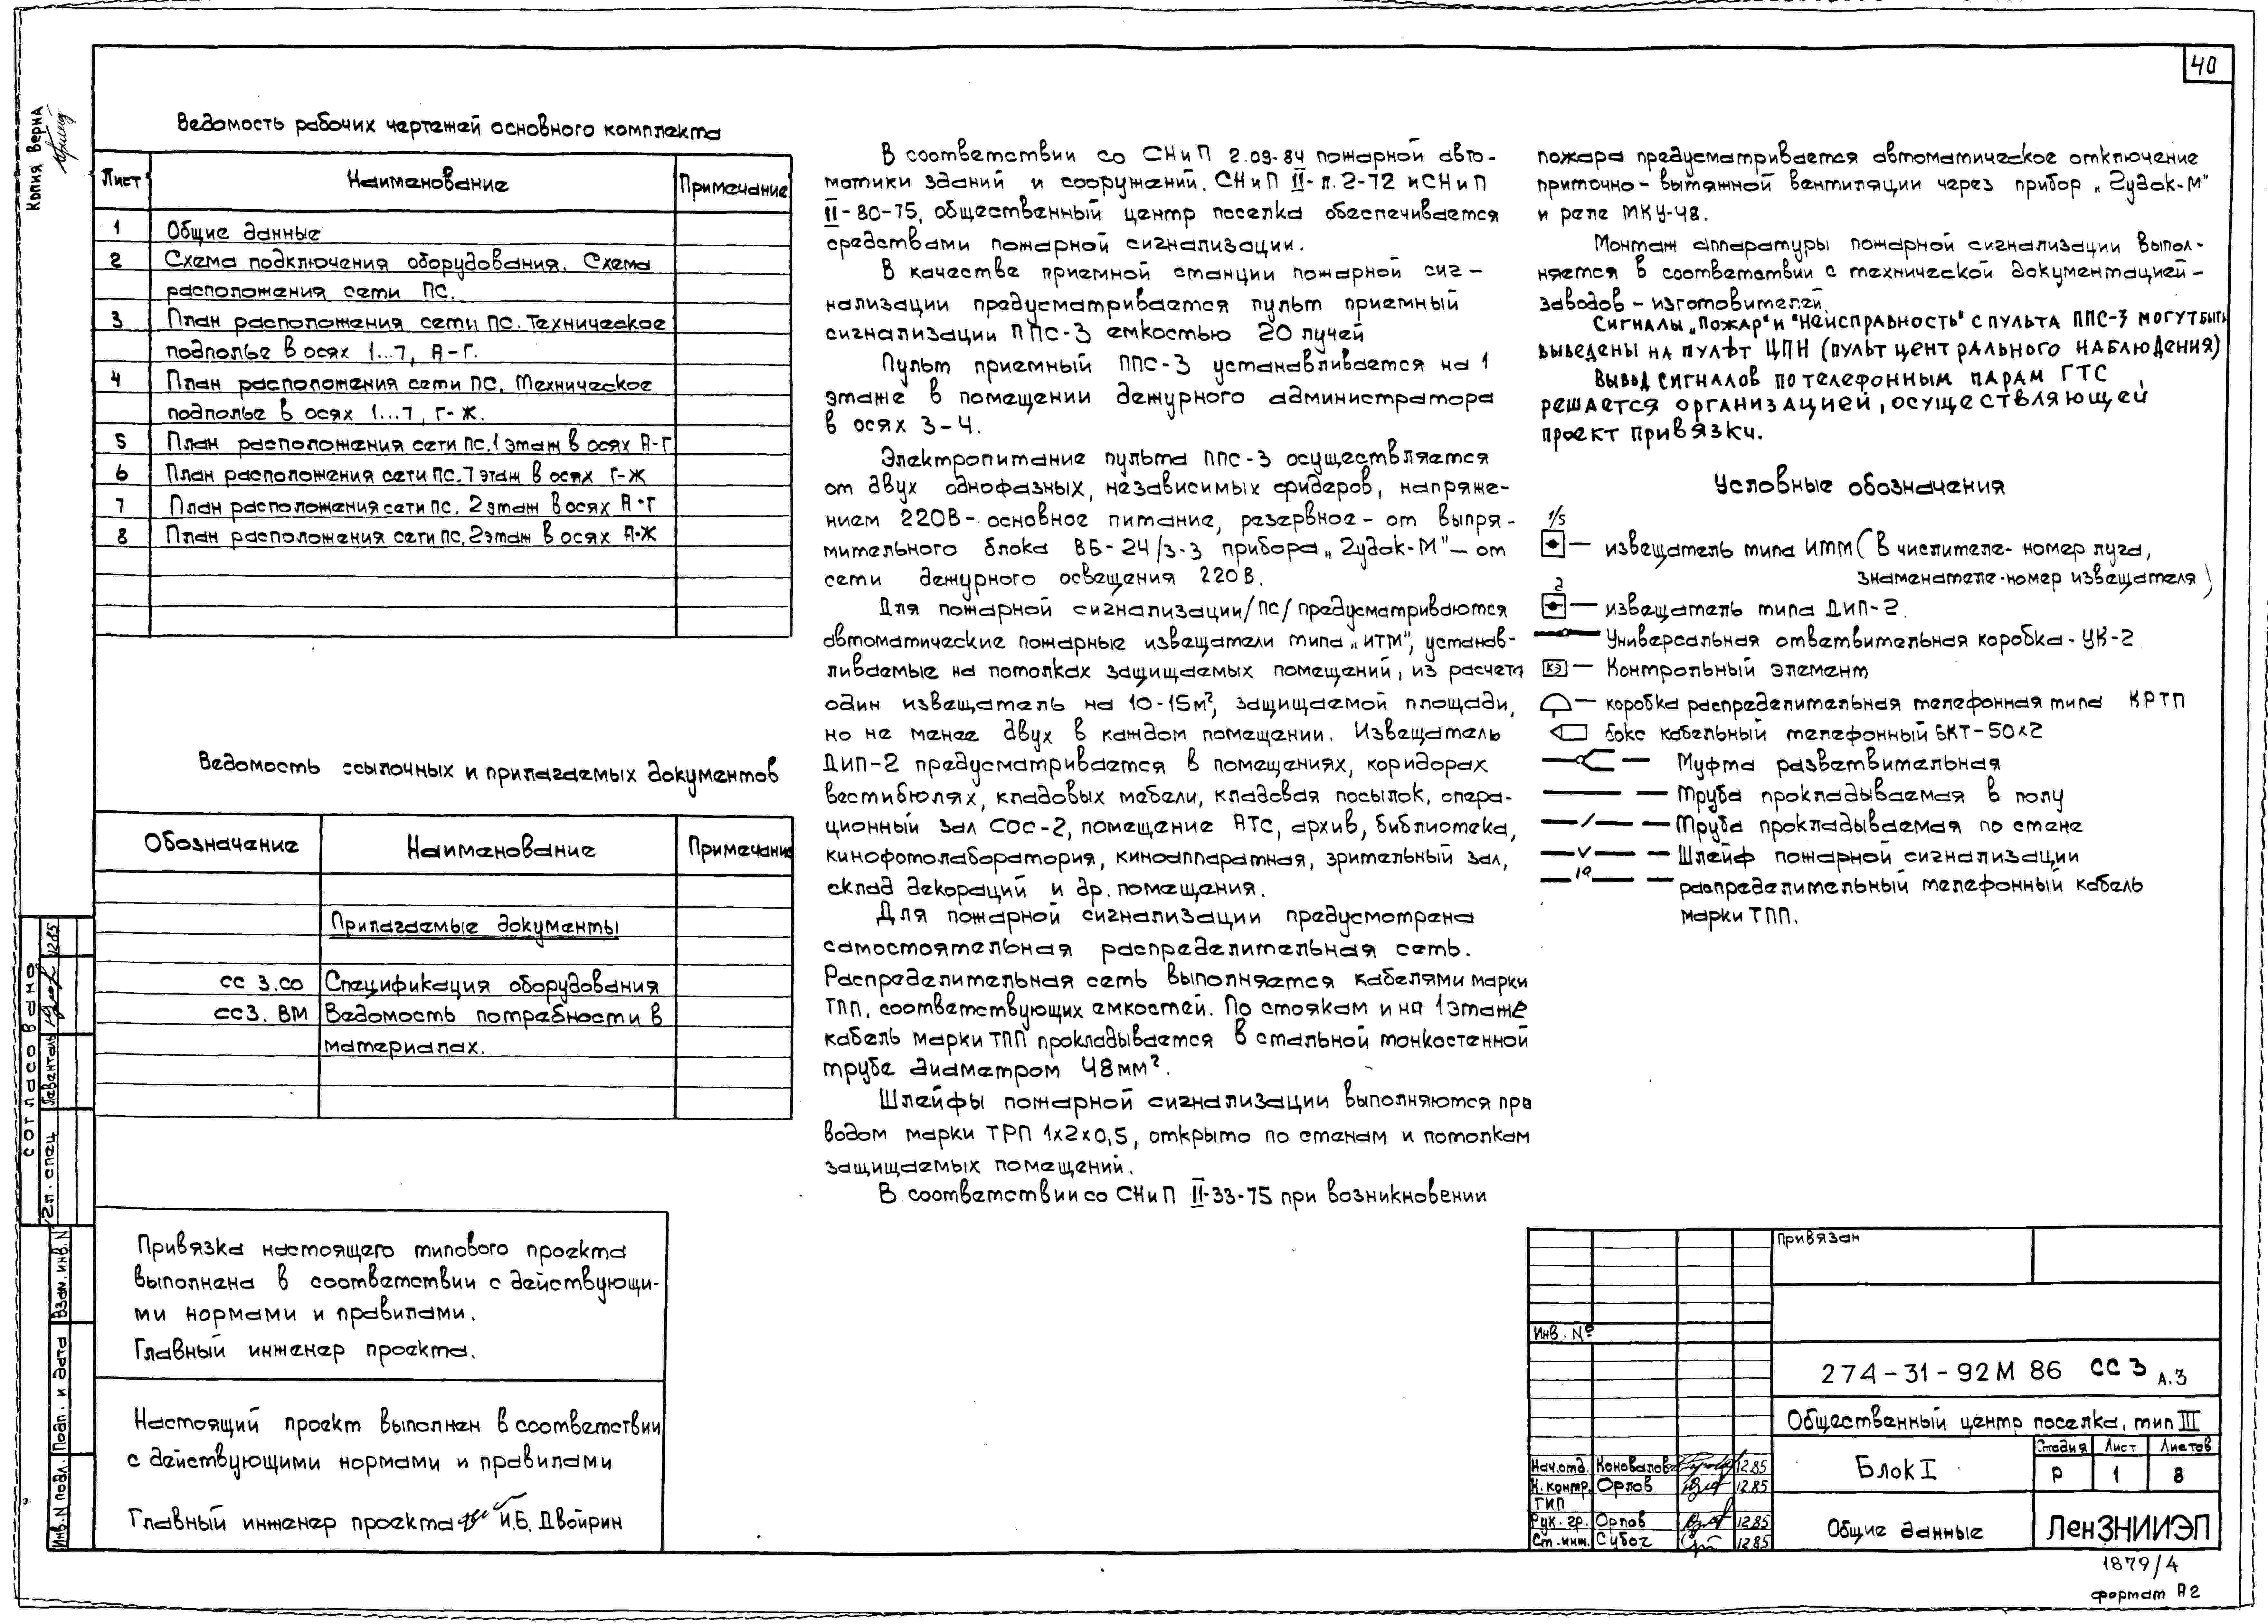 40
Копия верна
Ведомость рабочих чертежей основного комплекта
Лист Наименование Примечание
1 Общие данные
2 Схема подключения оборудования. Схема
расположения сети ПС.
3 План расположения сети ПС. Техническое
подполье в осях 1...7, А-Г.
4 План расположения сети ПС. Техническое
подполье в осях 1...7, Г-Ж.
5 План расположения сети ПС. 1 этаж в осях А-Г
6 План расположения сети ПС. 1 этаж в осях Г-Ж
7 План расположения сети ПС. 2 этаж в осях А-Г
8 План расположения сети ПС. 2 этаж в осях А-Ж
Ведомость ссылочных и прилагаемых документов
Обозначение Наименование Примечание
Прилагаемые документы
СС 3.СО Спецификация оборудования
СС3. ВМ Ведомость потребности в
материалах.
Привязка настоящего типового проекта
выполнена в соответствии с действующи-
ми нормами и правилами.
Главный инженер проекта.
Настоящий проект выполнен в соответствии
с действующими нормами и правилами
Главный инженер проекта И.Б. Двойрин
В соответствии со СНиП 2.09-84 пожарной авто-
матики зданий и сооружений. СНиП II-Л.2-72 и СНиП
II-80-75, общественный центр поселка обеспечивается
средствами пожарной сигнализации.
В качестве приемной станции пожарной сиг-
нализации предусматривается пульт приемный
сигнализации ППС-3 емкостью 20 лучей
Пульт приемный ППС-3 устанавливается на 1
этаже в помещении дежурного администратора
в осях 3-4.
Электропитание пульта ППС-3 осуществляется
от двух однофазных, независимых фидеров, напряже-
нием 220В- основное питание, резервное - от выпря-
мительного блока ВБ-24/3-3 прибора „Гудок-М" - от
сети дежурного освещения 220В.
Для пожарной сигнализации /ПС/ предусматриваются
автоматические пожарные извещатели типа „ИТМ", устанав-
ливаемые на потолках защищаемых помещений, из расчета
один извещатель на 10-15м², защищаемой площади,
но не менее двух в каждом помещении. Извещатель
ДИП-2 предусматривается в помещениях, коридорах
вестибюлях, кладовых мебели, кладовая посылок, опера-
ционный зал СОС-2, помещение АТС, архив, библиотека,
кинофотолаборатория, киноаппаратная, зрительный зал,
склад декораций и др. помещения.
Для пожарной сигнализации предусмотрена
самостоятельная распределительная сеть.
Распределительная сеть выполняется кабелями марки
ТПП, соответствующих емкостей. По стоякам и на 1 этаже
кабель марки ТПП прокладывается в стальной тонкостенной
трубе диаметром 48мм².
Шлейфы пожарной сигнализации выполняются про
водом марки ТРП 1х2х0,5, открыто по стенам и потолкам
защищаемых помещений.
В соответствии со СНиП II-33-75 при возникновении
пожара предусматривается автоматическое отключение
приточно-вытяжной вентиляции через прибор „Гудок-М"
и реле МКУ-48.
Монтаж аппаратуры пожарной сигнализации выпол-
няется в соответствии с технической документацией-
заводов-изготовителей.
Сигналы „Пожар" и "Неисправность" с пульта ППС-3 могут быть
выведены на пульт ЦПН (пульт центрального наблюдения)
Вывод сигналов по телефонным парам ГТС
решается организацией, осуществляющей
проект привязки.
Условные обозначения
1/5
— извещатель типа ИТМ (в числителе- номер луча,
знаменателе-номер извещателя)
2
— извещатель типа ДИП-2.
Универсальная ответвительная коробка-УК-2
КЭ — Контрольный элемент
— коробка распределительная телефонная типа КРТП
бокс кабельный телефонный БКТ-50х2
— Муфта разветвительная
— Труба прокладываемая в полу
— Труба прокладываемая по стене
— Шлейф пожарной сигнализации
— распределительный телефонный кабель
марки ТПП.
Согласовано
Гл. спец. Левенталь 12.85
Инв. N подл. Подп. и дата Взам. инв. N
Привязан
Инв. №
274-31-92М 86 СС 3 А.3
Общественный центр поселка, тип III
Блок I
Стадия Лист Листов
Р 1 8
Нач.отд. Коновалов 12.85
Н. контр. Орлов 12.85
ГИП
Рук. гр. Орлов 12.85
Ст. инж. Субоч 12.85
Общие данные
ЛенЗНИИЭП
1879/4
формат А2